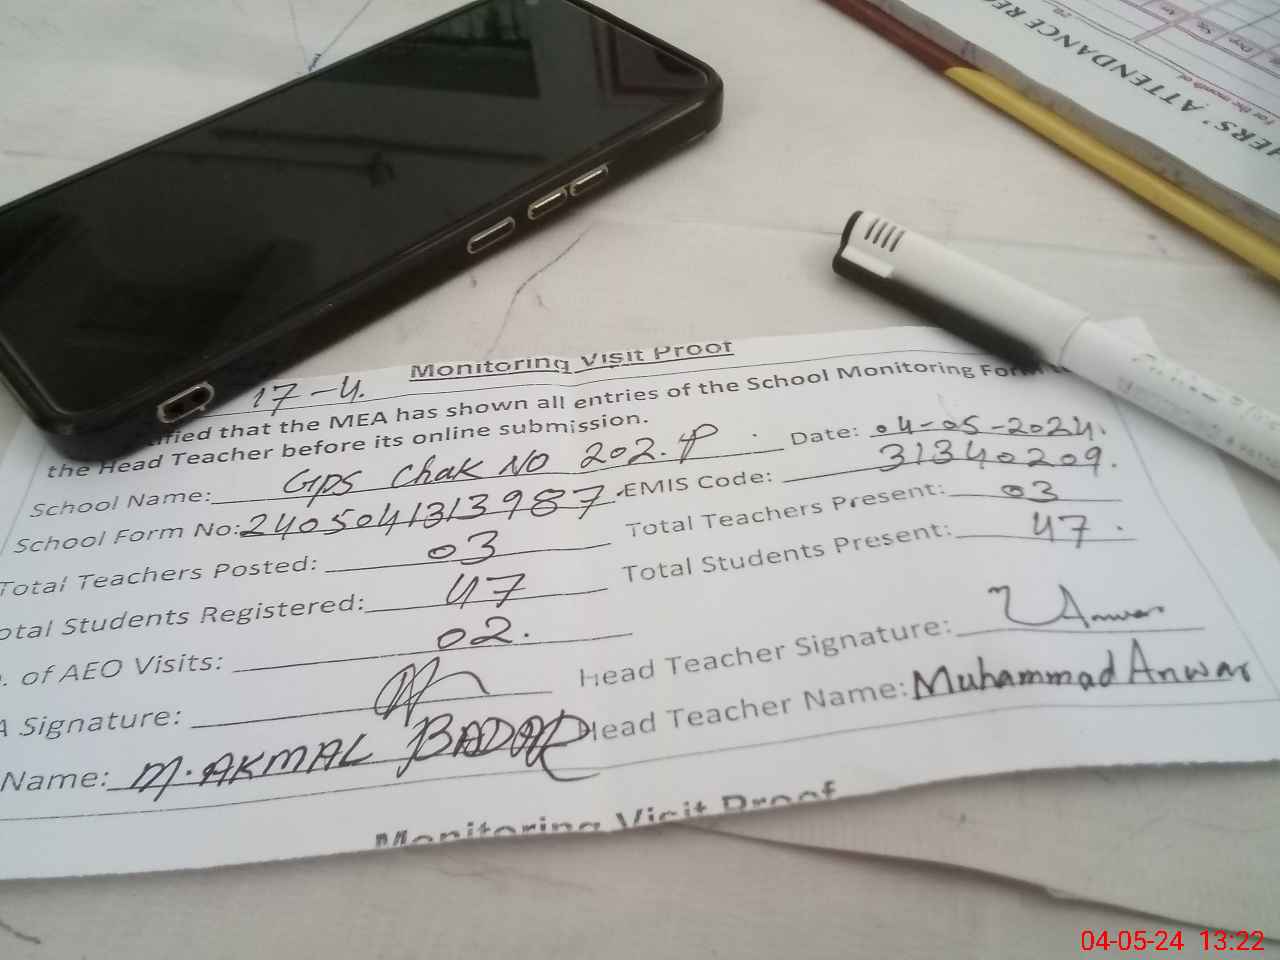 HERS' ATTENDANCE RE
For the month of
17-4.
Monitoring Visit Proof
ified that the MEA has shown all entries of the School Monitoring Form to
the Head Teacher before its online submission.
School Name: GPS Chak NO 202.P Date: 04-05-2024.
School Form No: 2405041313987. EMIS Code: 31340209.
Total Teachers Posted: 03 Total Teachers Present: 03
otal Students Registered: 47 Total Students Present: 47.
. of AEO Visits: 02.
A Signature: Head Teacher Signature: Anwar
Name: M. AKMAL BADAR Head Teacher Name: Muhammad Anwar
Monitoring Visit Proof
04-05-24 13:22